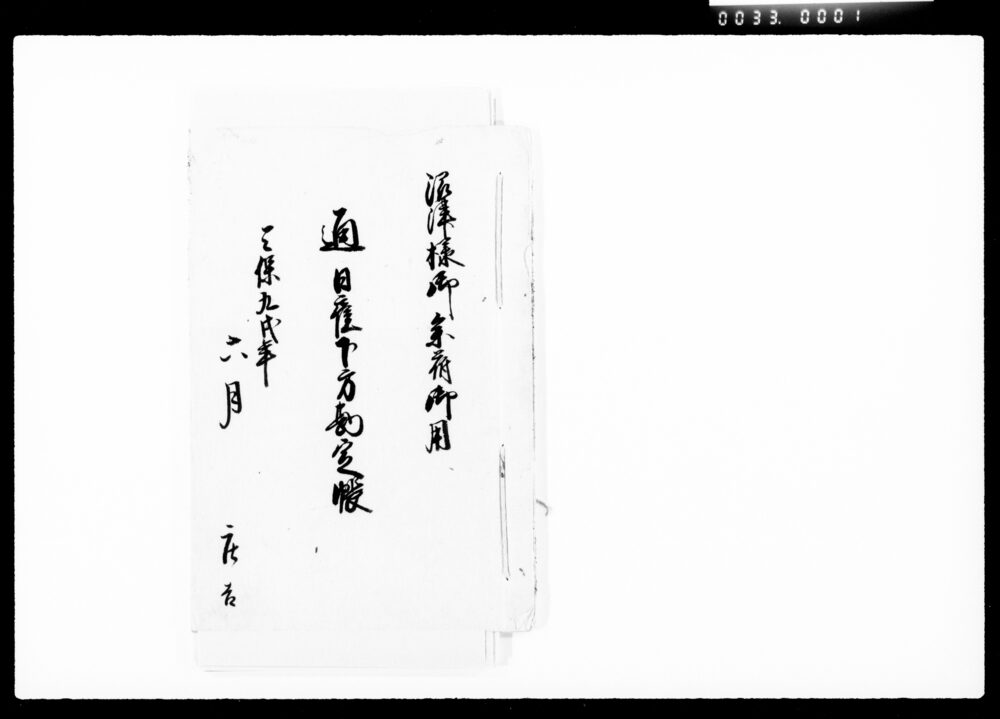 0033. 0001
様御乗荷御用
通日雇下方勘定帳
天保九戌年
六月
庄吉